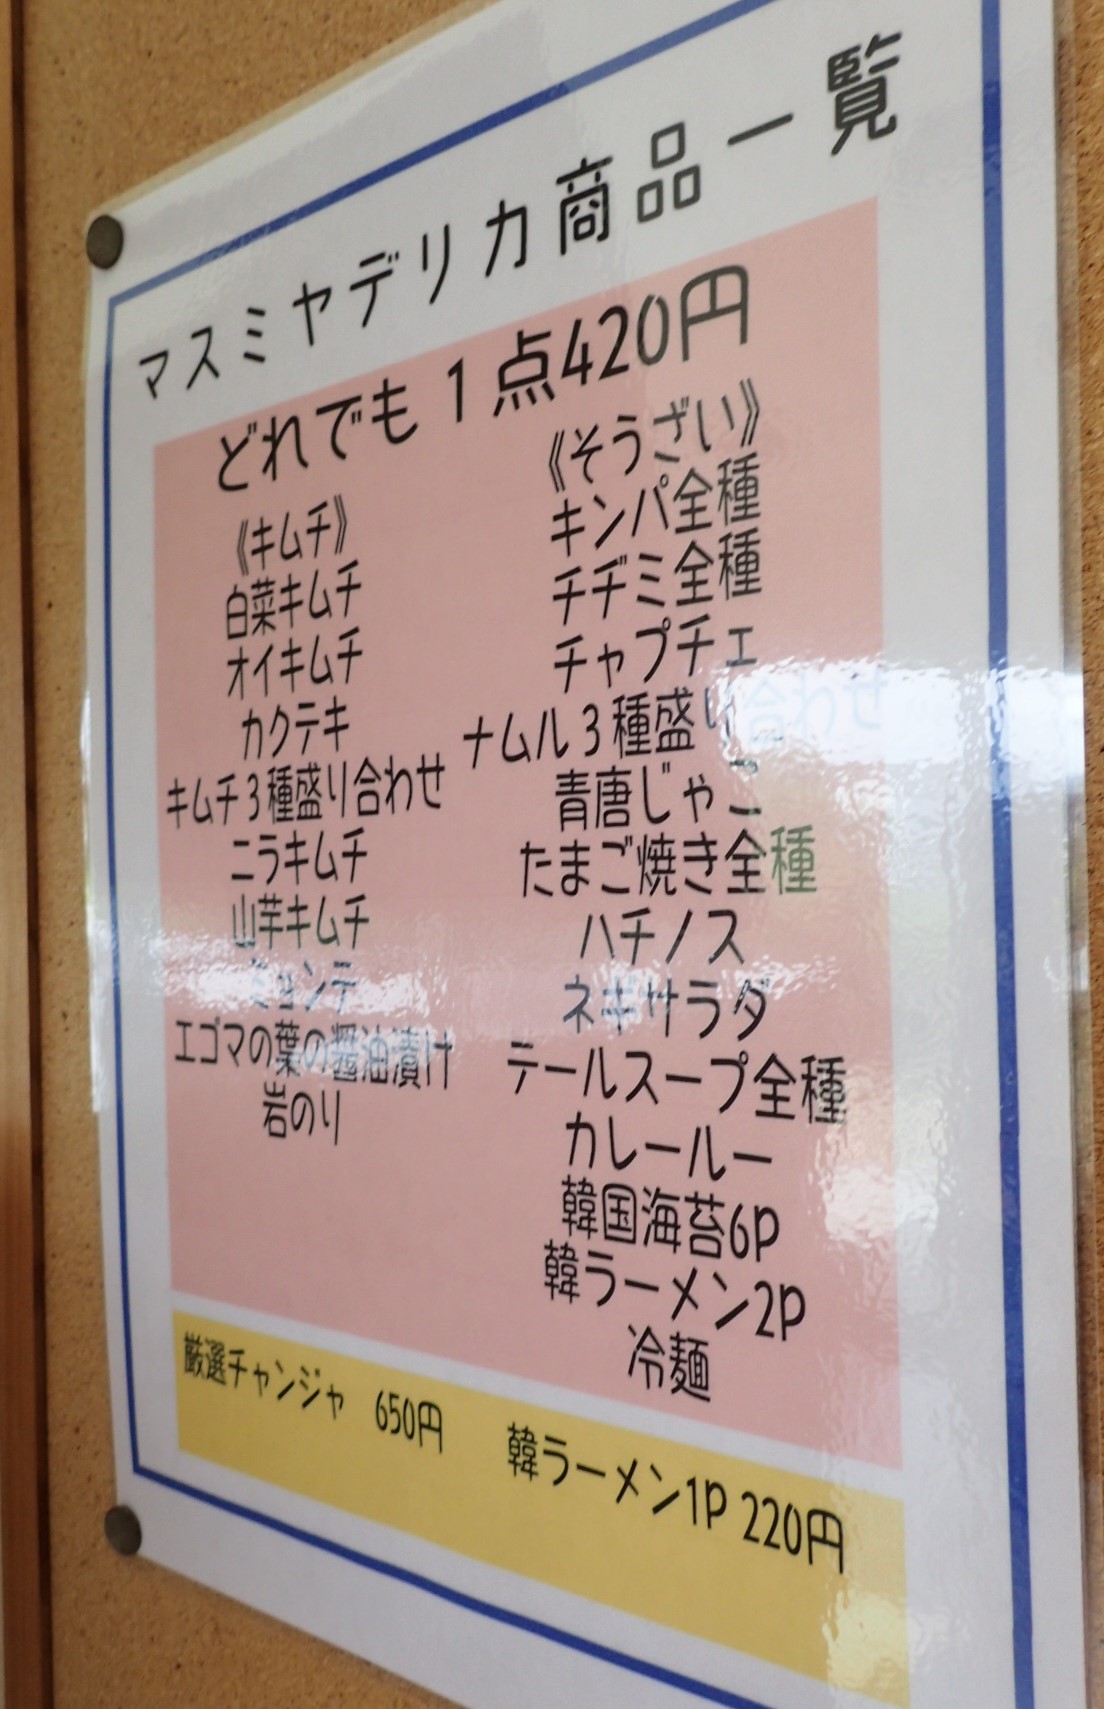 マスミヤデリカ商品一覧
どれでも1点420円
《キムチ》
白菜キムチ
オイキムチ
カクテキ
キムチ3種盛り合わせ
ニラキムチ
山芋キムチ
ミョンテ
エゴマの葉の醤油漬け
岩のり
《そうざい》
キンパ全種
チヂミ全種
チャプチェ
ナムル3種盛り合わせ
青唐じゃこ
たまご焼き全種
ハチノス
ネギサラダ
テールスープ全種
カレールー
韓国海苔6P
韓ラーメン2P
冷麺
厳選チャンジャ 650円
韓ラーメン1P 220円